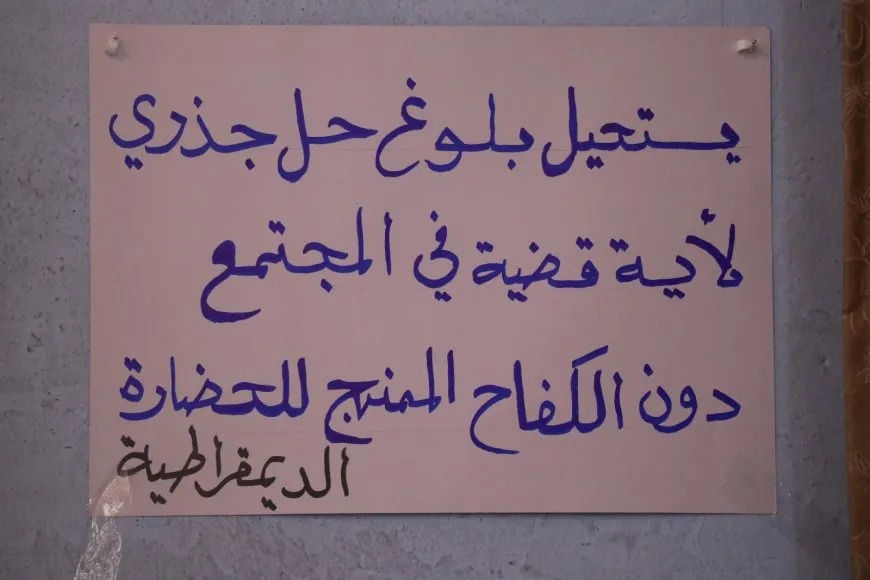 يستحيل بلوغ حل جذري
لأية قضية في المجتمع
دون الكفاح الممنهج للحضارة
الديمقراطية